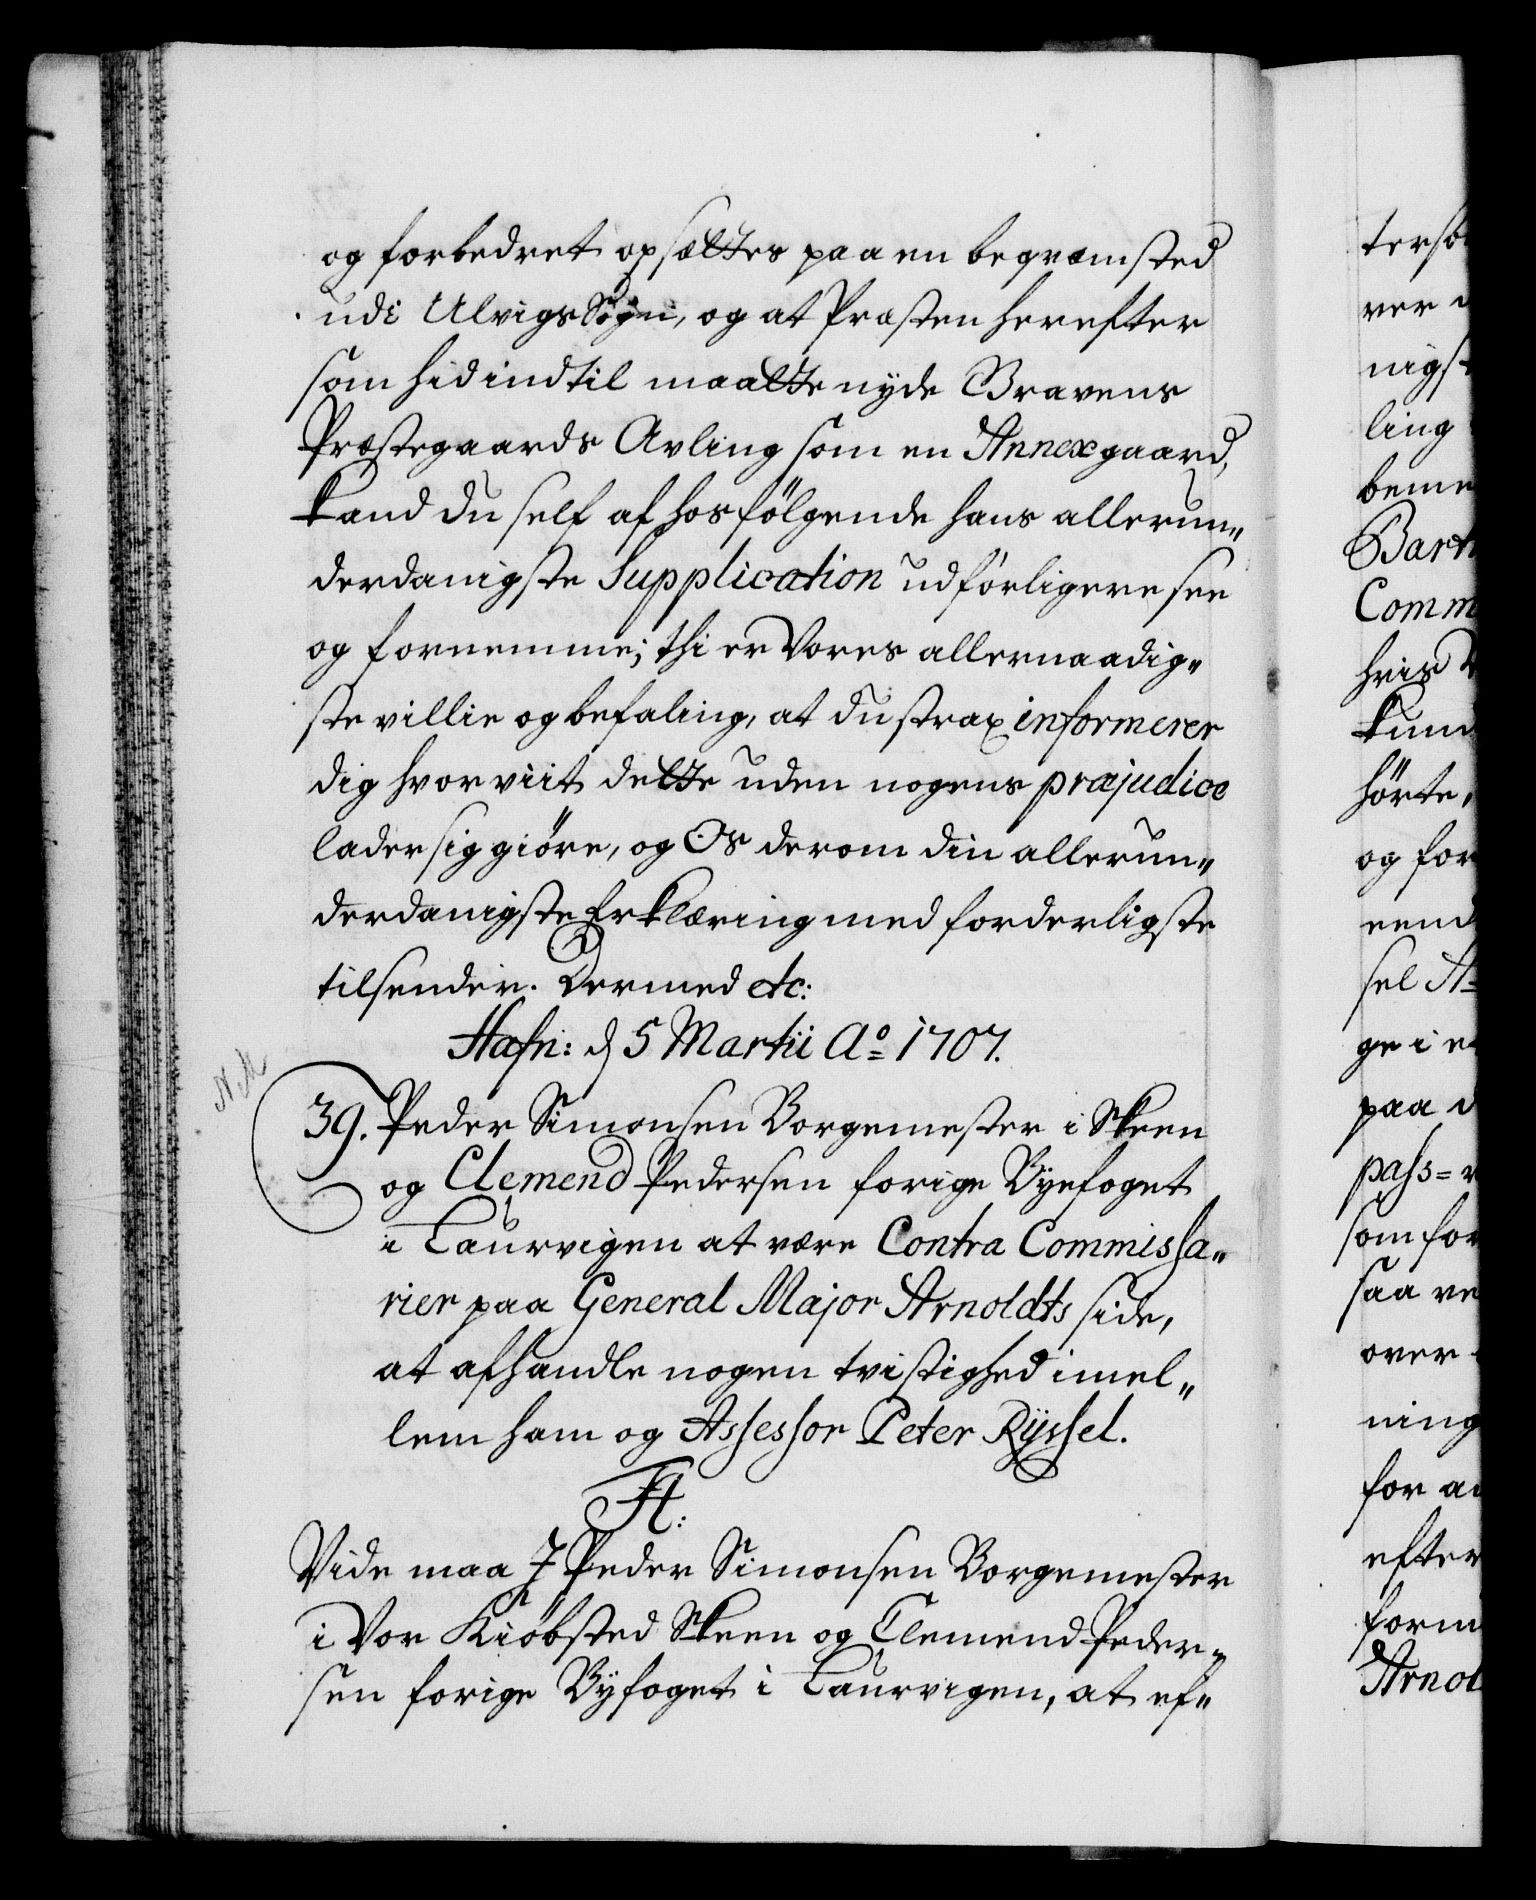 og forbedret opsættes paa en beqvemsted
udi Ulvigs Sogn, og at Præsten herefter
som hid indtil maatte nyde Gravens
Præstegaards Avling som en Annexgaard,
kand du self af hosfölgende hans allerun„
derdanigste Supplication udförligere see
og fornemme; thi er Vores allernaadig„
ste villie og befaling, at du strax informerer
dig hvorviit dette uden nogens præjudice
lader sig giöre, og Os derom din allerun„
derdanigste Erklæring med forderligste
tilsender. Dermed etc:
Hafn: d 5 Martii Ao 1707.
N M
39. Peder Simonsen Borgemester i Skeen
og Clemend Pedersen forige Byefoget
i Laurvigen at være Contra Commissa„
rier paa General Major Arnoldts side,
at afhandle nogen tvistighed imel„
lem ham og Assessor Peter Rÿssel.
F4:
Vide maa I Peder Simonsen Borgemester
i Vor Kiöbsted Skeen og Clemend Peder„
sen forige Byfoget i Laurvigen, at ef„
ver
nigst
ling
beme
Barth
Comm
hvis
kund
hörte,
og for
eend
sel A=
ge i e
paa d
pass=
som for
saa ve
over
ning
for a
efter
form
Arnol